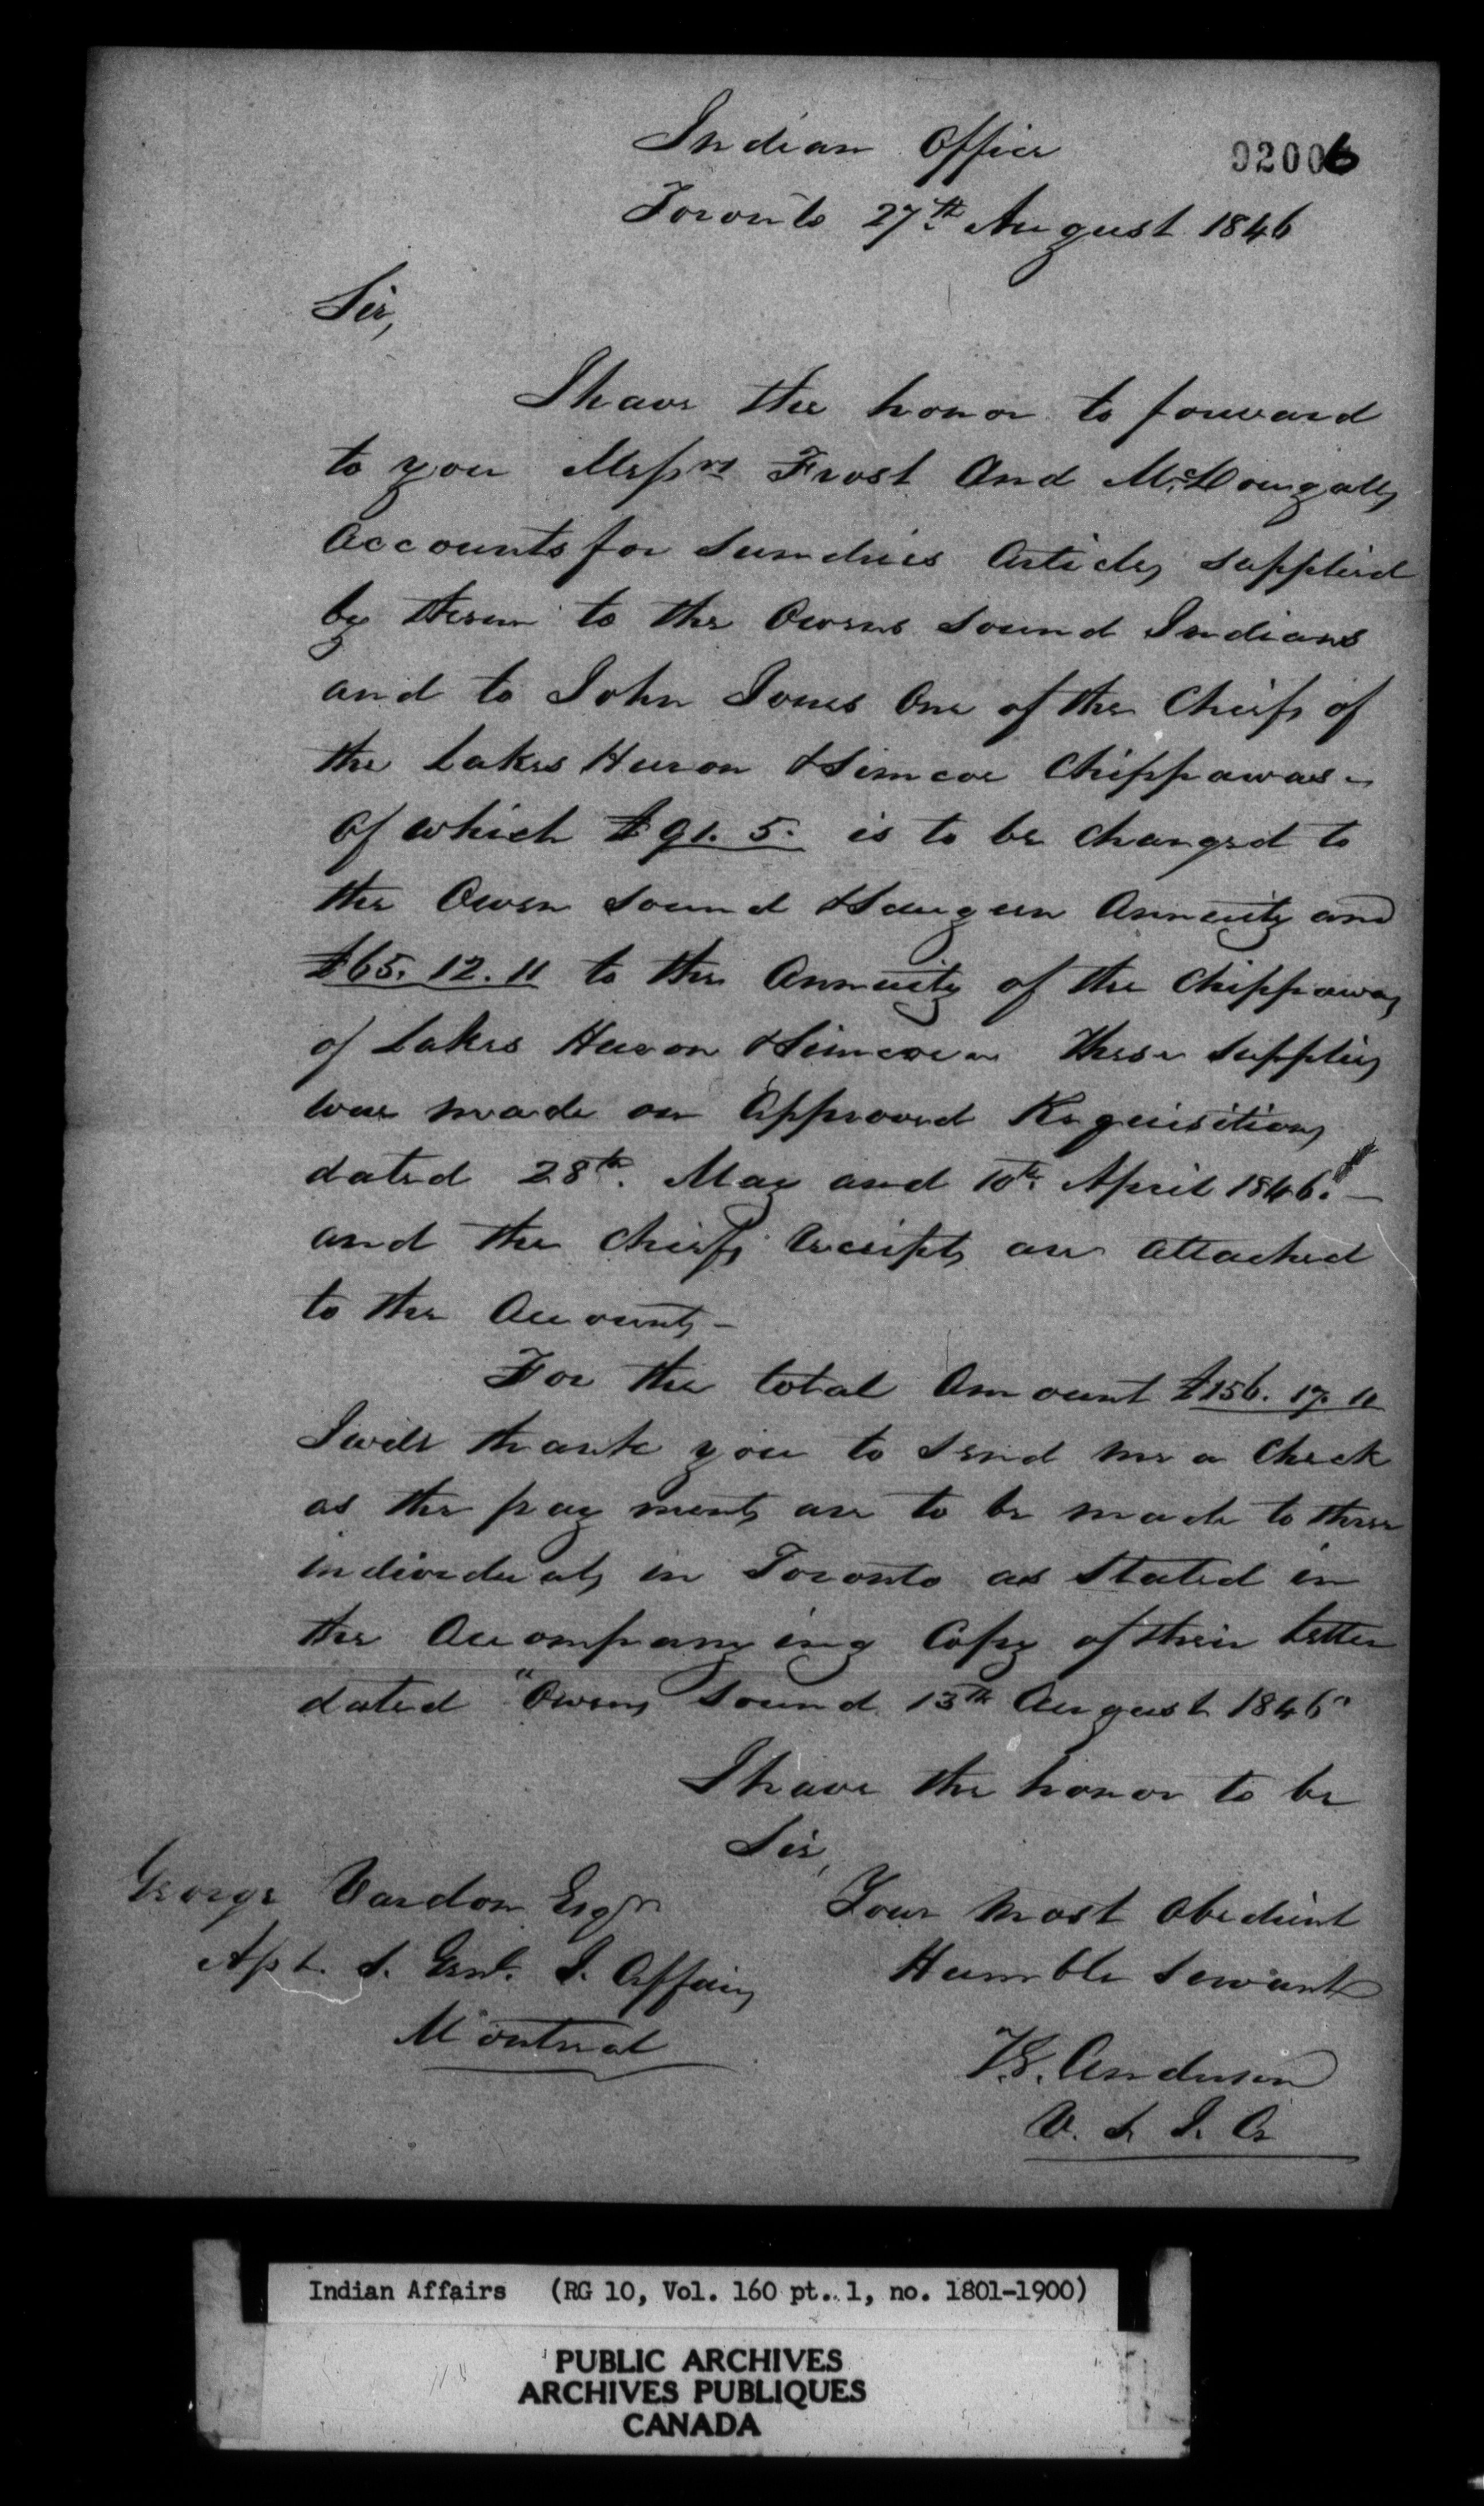 Indian Office
92006
Toronto 27th August 1846
Sir,
I have the honor to forward
to you Messrs Frost And McDougalls
Accounts for Sundries Articles supplied
by them to the Owens Sound Indians
and to John Jones One of the Chiefs of
the Lakes Huron & Simcoe Chippawas –
Of which £91. 5. is to be charged to
the Owen Sound & Saugeen Annuity and
£65. 12. 11 to the Annuity of the Chippawas
of Lakes Huron & Simcoe – These supplies
were made on Approved Requisitions
dated 28th. May and 10th. April 1846. –
and the Chiefs receipts are attached
to the Accounts –
For the total Amount £156. 17. 11
I will thank you to send me a Check
as the payments are to be made to these
individuals in Toronto as Stated in
the Accompanying Copy of their letter
dated "Owens Sound 13th August 1846"
I have the honor to be
Sir,
Your Most Obedient
Humble Servant
T.G. Anderson
V. S. I. A
George Vardon Esqr
Asst. S. Genl. I. Affairs
Montreal
Indian Affairs (RG 10, Vol. 160 pt. 1, no. 1801-1900)
PUBLIC ARCHIVES
ARCHIVES PUBLIQUES
CANADA